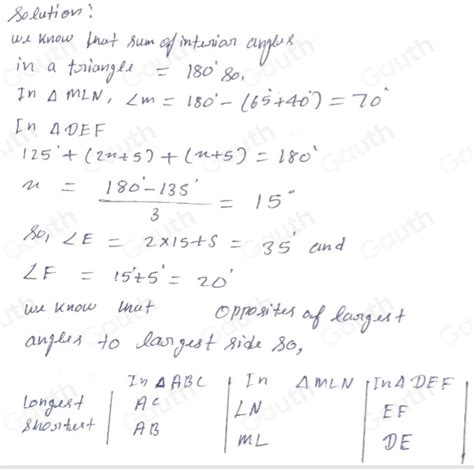 Solution:
we know that sum of interior angles
in a triangle = 180° so,
In △ MLN, ∠m = 180° - (65° + 40°) = 70°
In △ DEF
125° + (2x+5) + (x+5) = 180°
x = 180° - 135° / 3 = 15°
So, ∠E = 2x15+5 = 35° and
∠F = 15°+5° = 20°
we know that opposites of largest
angles to largest side so,
In △ ABC In △ MLN In △ DEF
Longest AC LN EF
Shortest AB ML DE